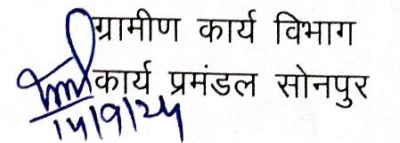 ग्रामीण कार्य विभाग
कार्य प्रमंडल सोनपुर
14/9/24